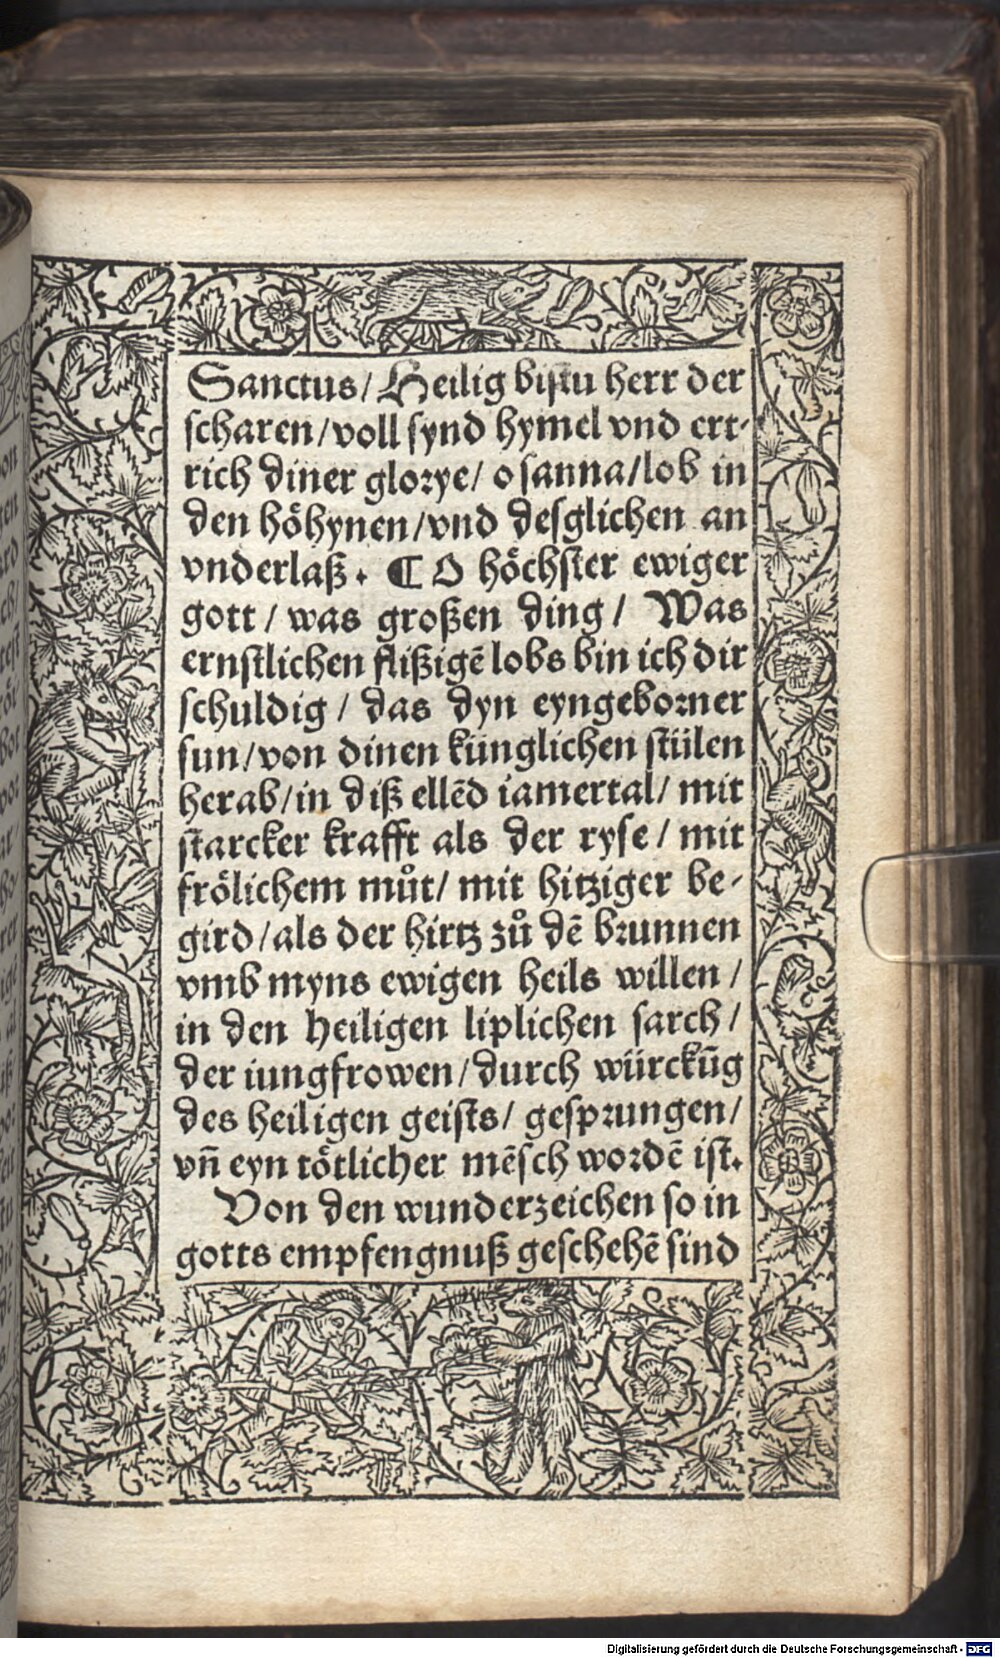 Sanctus/ Heilig bistu herr der
scharen/voll synd hymel vnd ert-
rich diner glorye/ osanna/lob in
den höhynen/vnd desglichen an
vnderlaß. ¶ O höchster ewiger
gott/ was großen ding/ Was
ernstlichen flißigē lobs bin ich dir
schuldig/ das dyn eyngeborner
sun/von dinen künglichen stülen
herab/in diß ellēd iamertal/ mit
starcker krafft als der ryse/ mit
frölichem můt/ mit hitziger be-
gird/als der hirtz zů dē brunnen
vmb myns ewigen heils willen/
in den heiligen liplichen sarch/
der iungfrowen/durch würckūg
des heiligen geists/ gesprungen/
vn̄ eyn tötlicher mēsch wordē ist.
Von den wunderzeichen so in
gotts empfengnuß geschehē sind
Digitalisierung gefördert durch die Deutsche Forschungsgemeinschaft - DFG